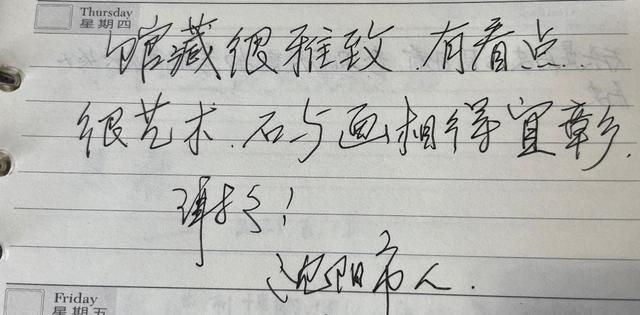 Thursday
星期四
馆藏很雅致.有看点.
很艺术.石与画相得宜彰.
！
沈阳市人.
Friday
星期五